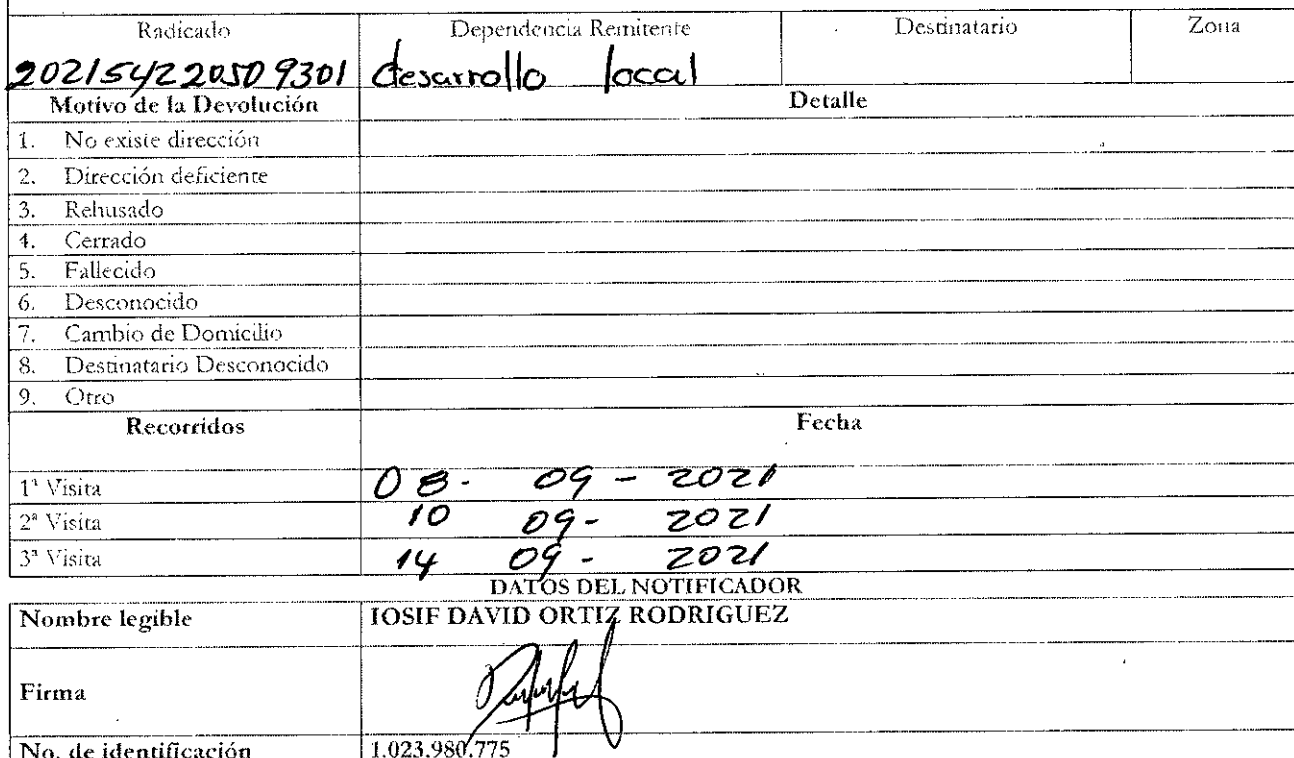 Radicado Dependencia Remitente Destinatario Zona
20215422050 9301 desarrollo local
Motivo de la Devolución Detalle
1. No existe dirección
2. Dirección deficiente
3. Rehusado
4. Cerrado
5. Fallecido
6. Desconocido
7. Cambio de Domicilio
8. Destinatario Desconocido
9. Otro
Recorridos Fecha
1ª Visita 08- 09 - 2021
2ª Visita 10 09- 2021
3ª Visita 14 09 - 2021
DATOS DEL NOTIFICADOR
Nombre legible IOSIF DAVID ORTIZ RODRIGUEZ
Firma
No. de identificación 1.023.980.775